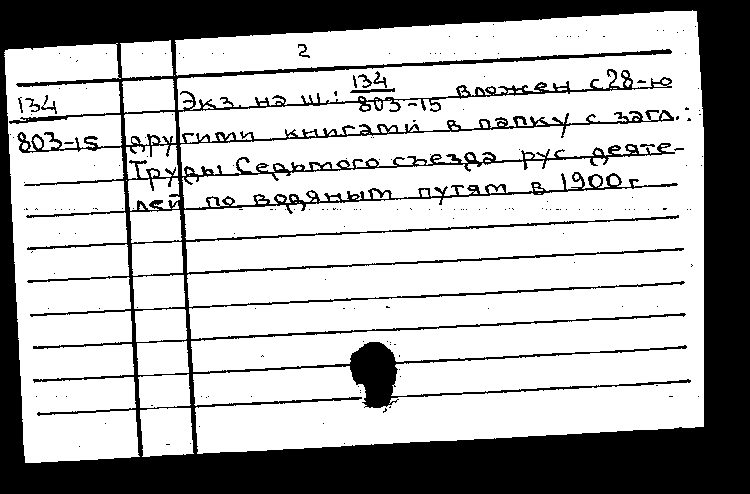 2
134
803-15
Экз. на ш.: 134/803-15 вложен с 28-ю
другими книгами в папку с загл.:
Труды Седьмого съезда рус. деяте-
лей по водяным путям в 1900 г.